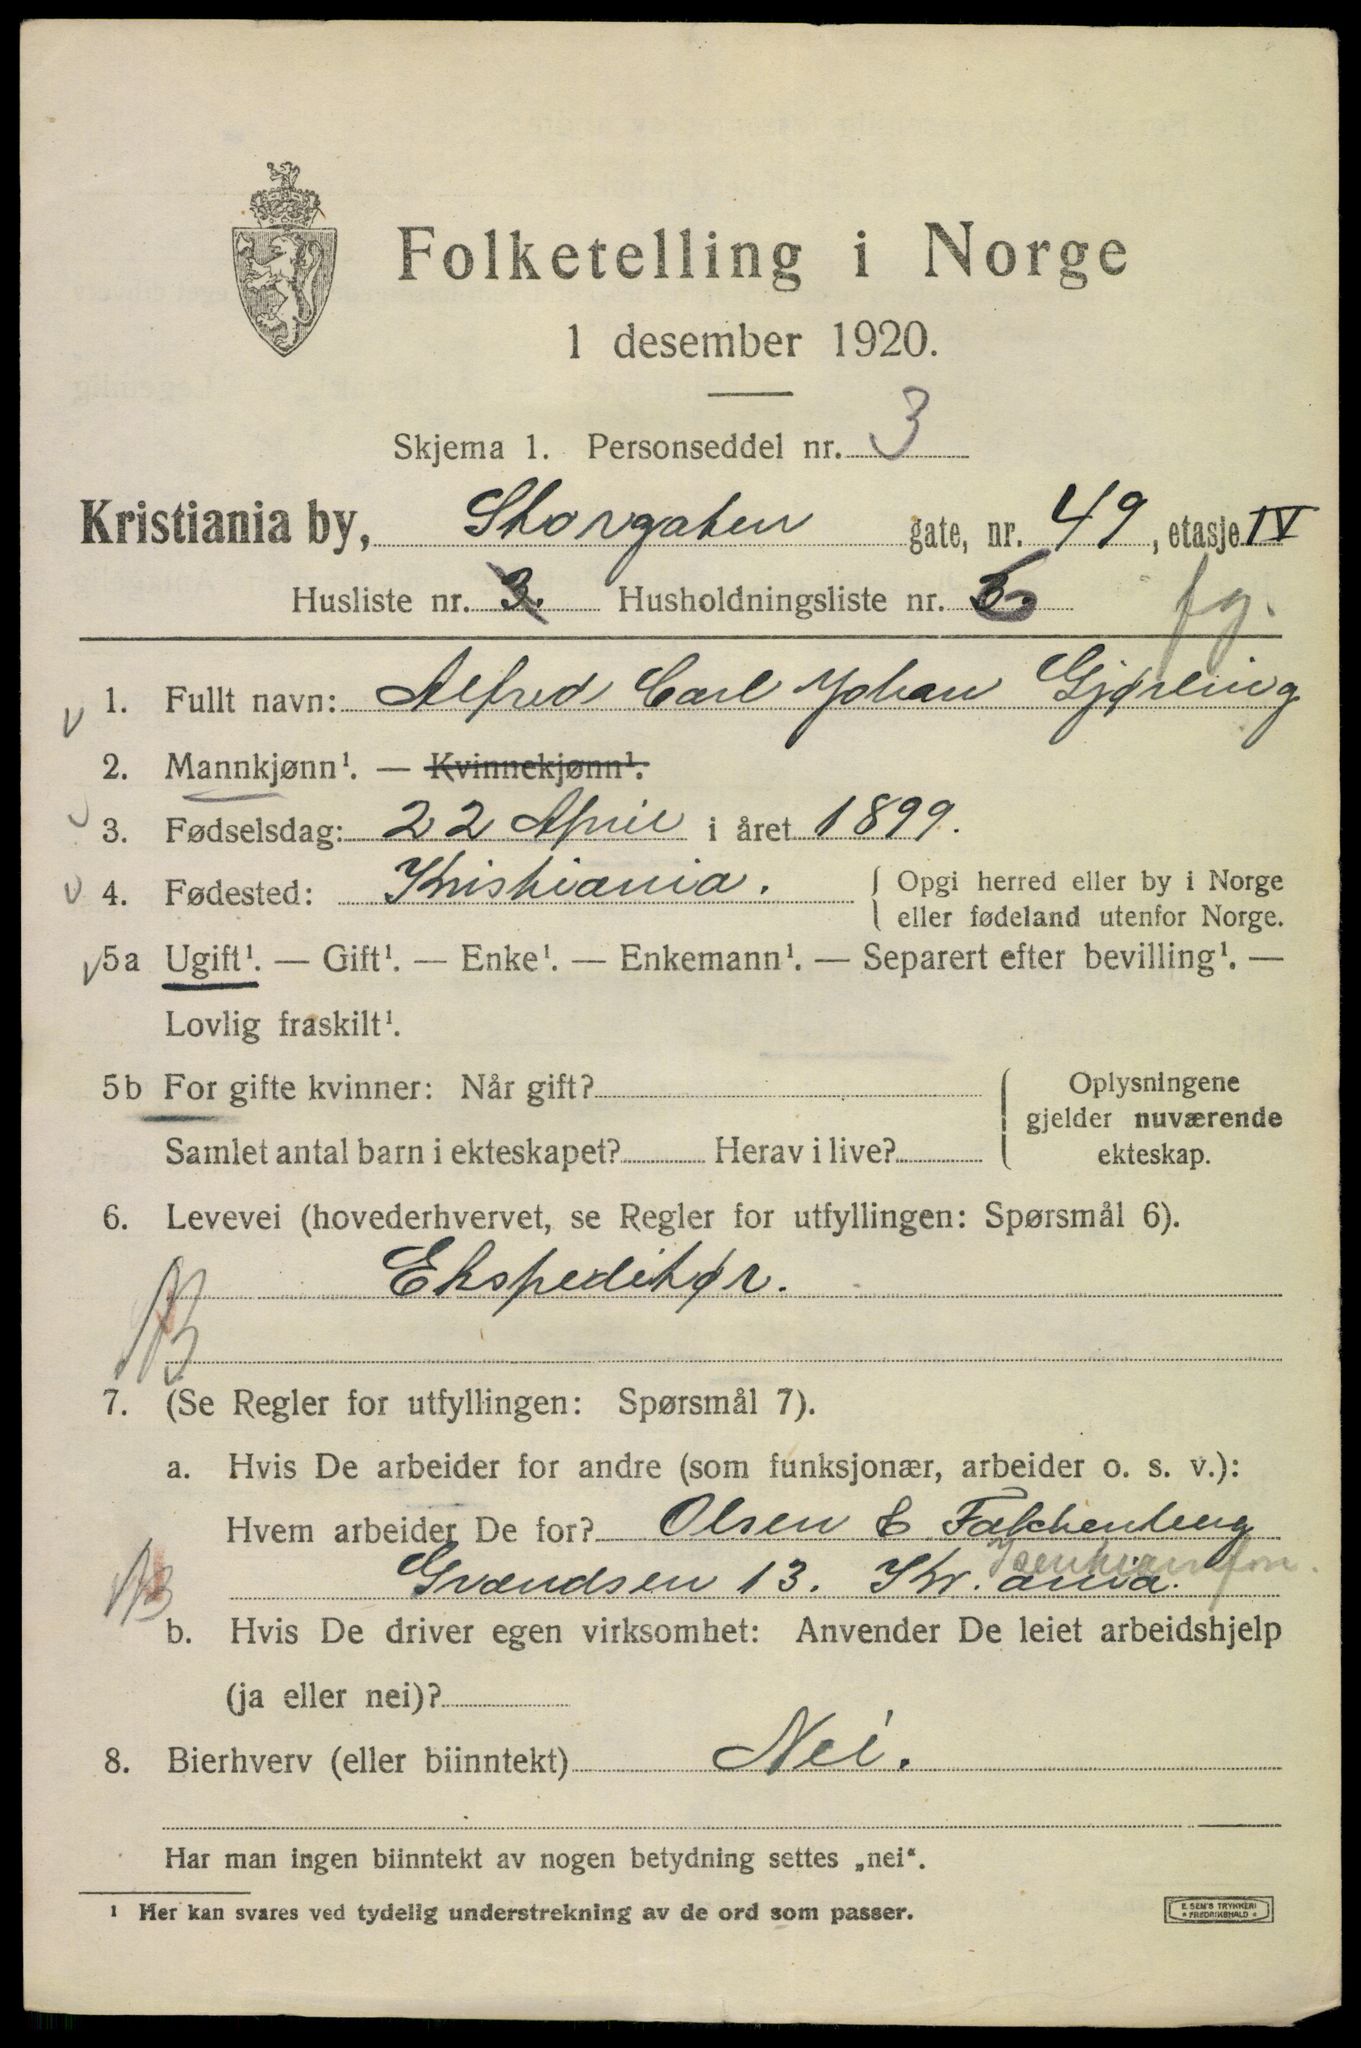 Folketelling i Norge
1 desember 1920.
Skjema 1. Personseddel nr. 3
Kristiania by, Storgaten gate, nr. 49, etasje IV
Husliste nr. 3. Husholdningsliste nr.
fg.
1. Fullt navn: Alfred Carl Johan Gjørling
2. Mannkjønn¹. — Kvinnekjønn¹.
3. Fødselsdag: 22 April i året 1899.
4. Fødested: Kristiania. { Opgi herred eller by i Norge
eller fødeland utenfor Norge.
5a Ugift¹. — Gift¹. — Enke¹. — Enkemann¹. — Separert efter bevilling¹. —
Lovlig fraskilt¹.
5b For gifte kvinner: Når gift? { Oplysningene
gjelder nuværende
Samlet antal barn i ekteskapet? Herav i live? ekteskap.
6. Levevei (hovederhvervet, se Regler for utfyllingen: Spørsmål 6).
Ekspeditør.
7. (Se Regler for utfyllingen: Spørsmål 7).
a. Hvis De arbeider for andre (som funksjonær, arbeider o. s. v.):
Hvem arbeider De for? Olsen & Falchenberg
Grændsen 13. Kr.ania.
b. Hvis De driver egen virksomhet: Anvender De leiet arbeidshjelp
(ja eller nei)?
8. Bierhverv (eller biinntekt) Nei.
Har man ingen biinntekt av nogen betydning settes „nei“.
¹ Her kan svares ved tydelig understrekning av de ord som passer.
E. SEM'S TRYKKERI
* FREDRIKSHALD *